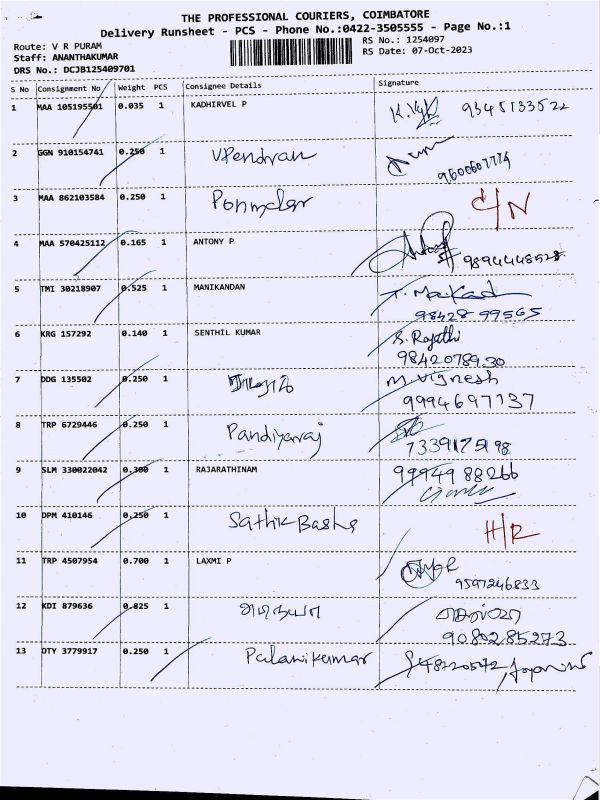 THE PROFESSIONAL COURIERS, COIMBATORE
Delivery Runsheet - PCS - Phone No.:0422-3505555 - Page No.:1
Route: V R PURAM
RS No.: 1254097
Staff: ANANTHAKUMAR
RS Date: 07-Oct-2023
DRS No.: DCJB125409701
S No Consignment No Weight PCS Consignee Details Signature
1 MAA 105195501 0.035 1 KADHIRVEL P 9345133522
2 GGN 910154741 0.250 1 VPendran
3 MAA 862103584 0.250 1 C/N
4 MAA 570425112 0.165 1 ANTONY P 9894448528
5 TMI 30218907 0.525 1 MANIKANDAN
98428 99565
6 KRG 157292 0.140 1 SENTHIL KUMAR S. Rajathi
9842078930
7 DDG 135502 0.250 1 M.Vignesh
9994697137
8 TRP 6729446 0.250 1 Pandiyaraj
7339175198
9 SLM 330022042 0.300 1 RAJARATHINAM 99949 88266
10 DPM 410146 0.250 1 Sathik Basha H/R
11 TRP 4507954 0.700 1 LAXMI P
9597246833
12 KDI 879636 0.825 1
90802 85273
13 DTY 3779917 0.250 1 Palanikumar